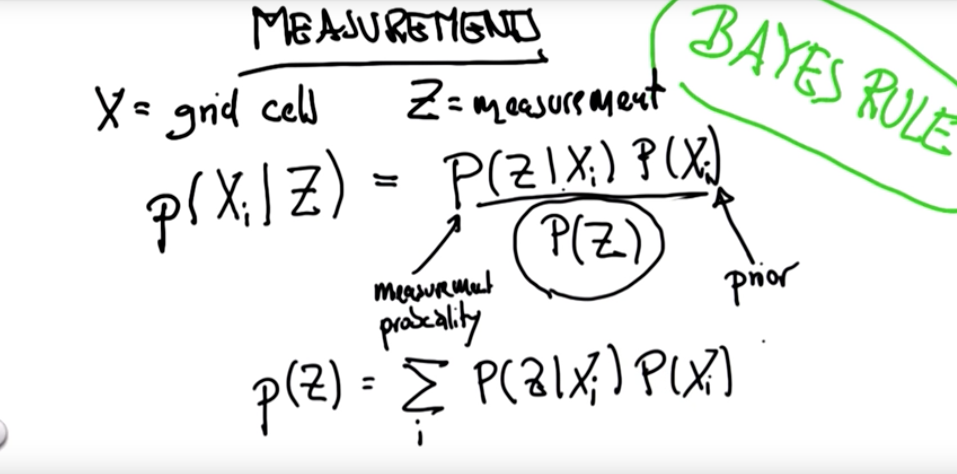 MEASUREMENT
BAYES RULE
X = grid cell Z = measurement
P(Xi | Z) = P(Z | Xi) P(Xi)
P(Z)
measurement
probcality
prior
p(Z) = ∑ P(Z | Xi) P(Xi)
i